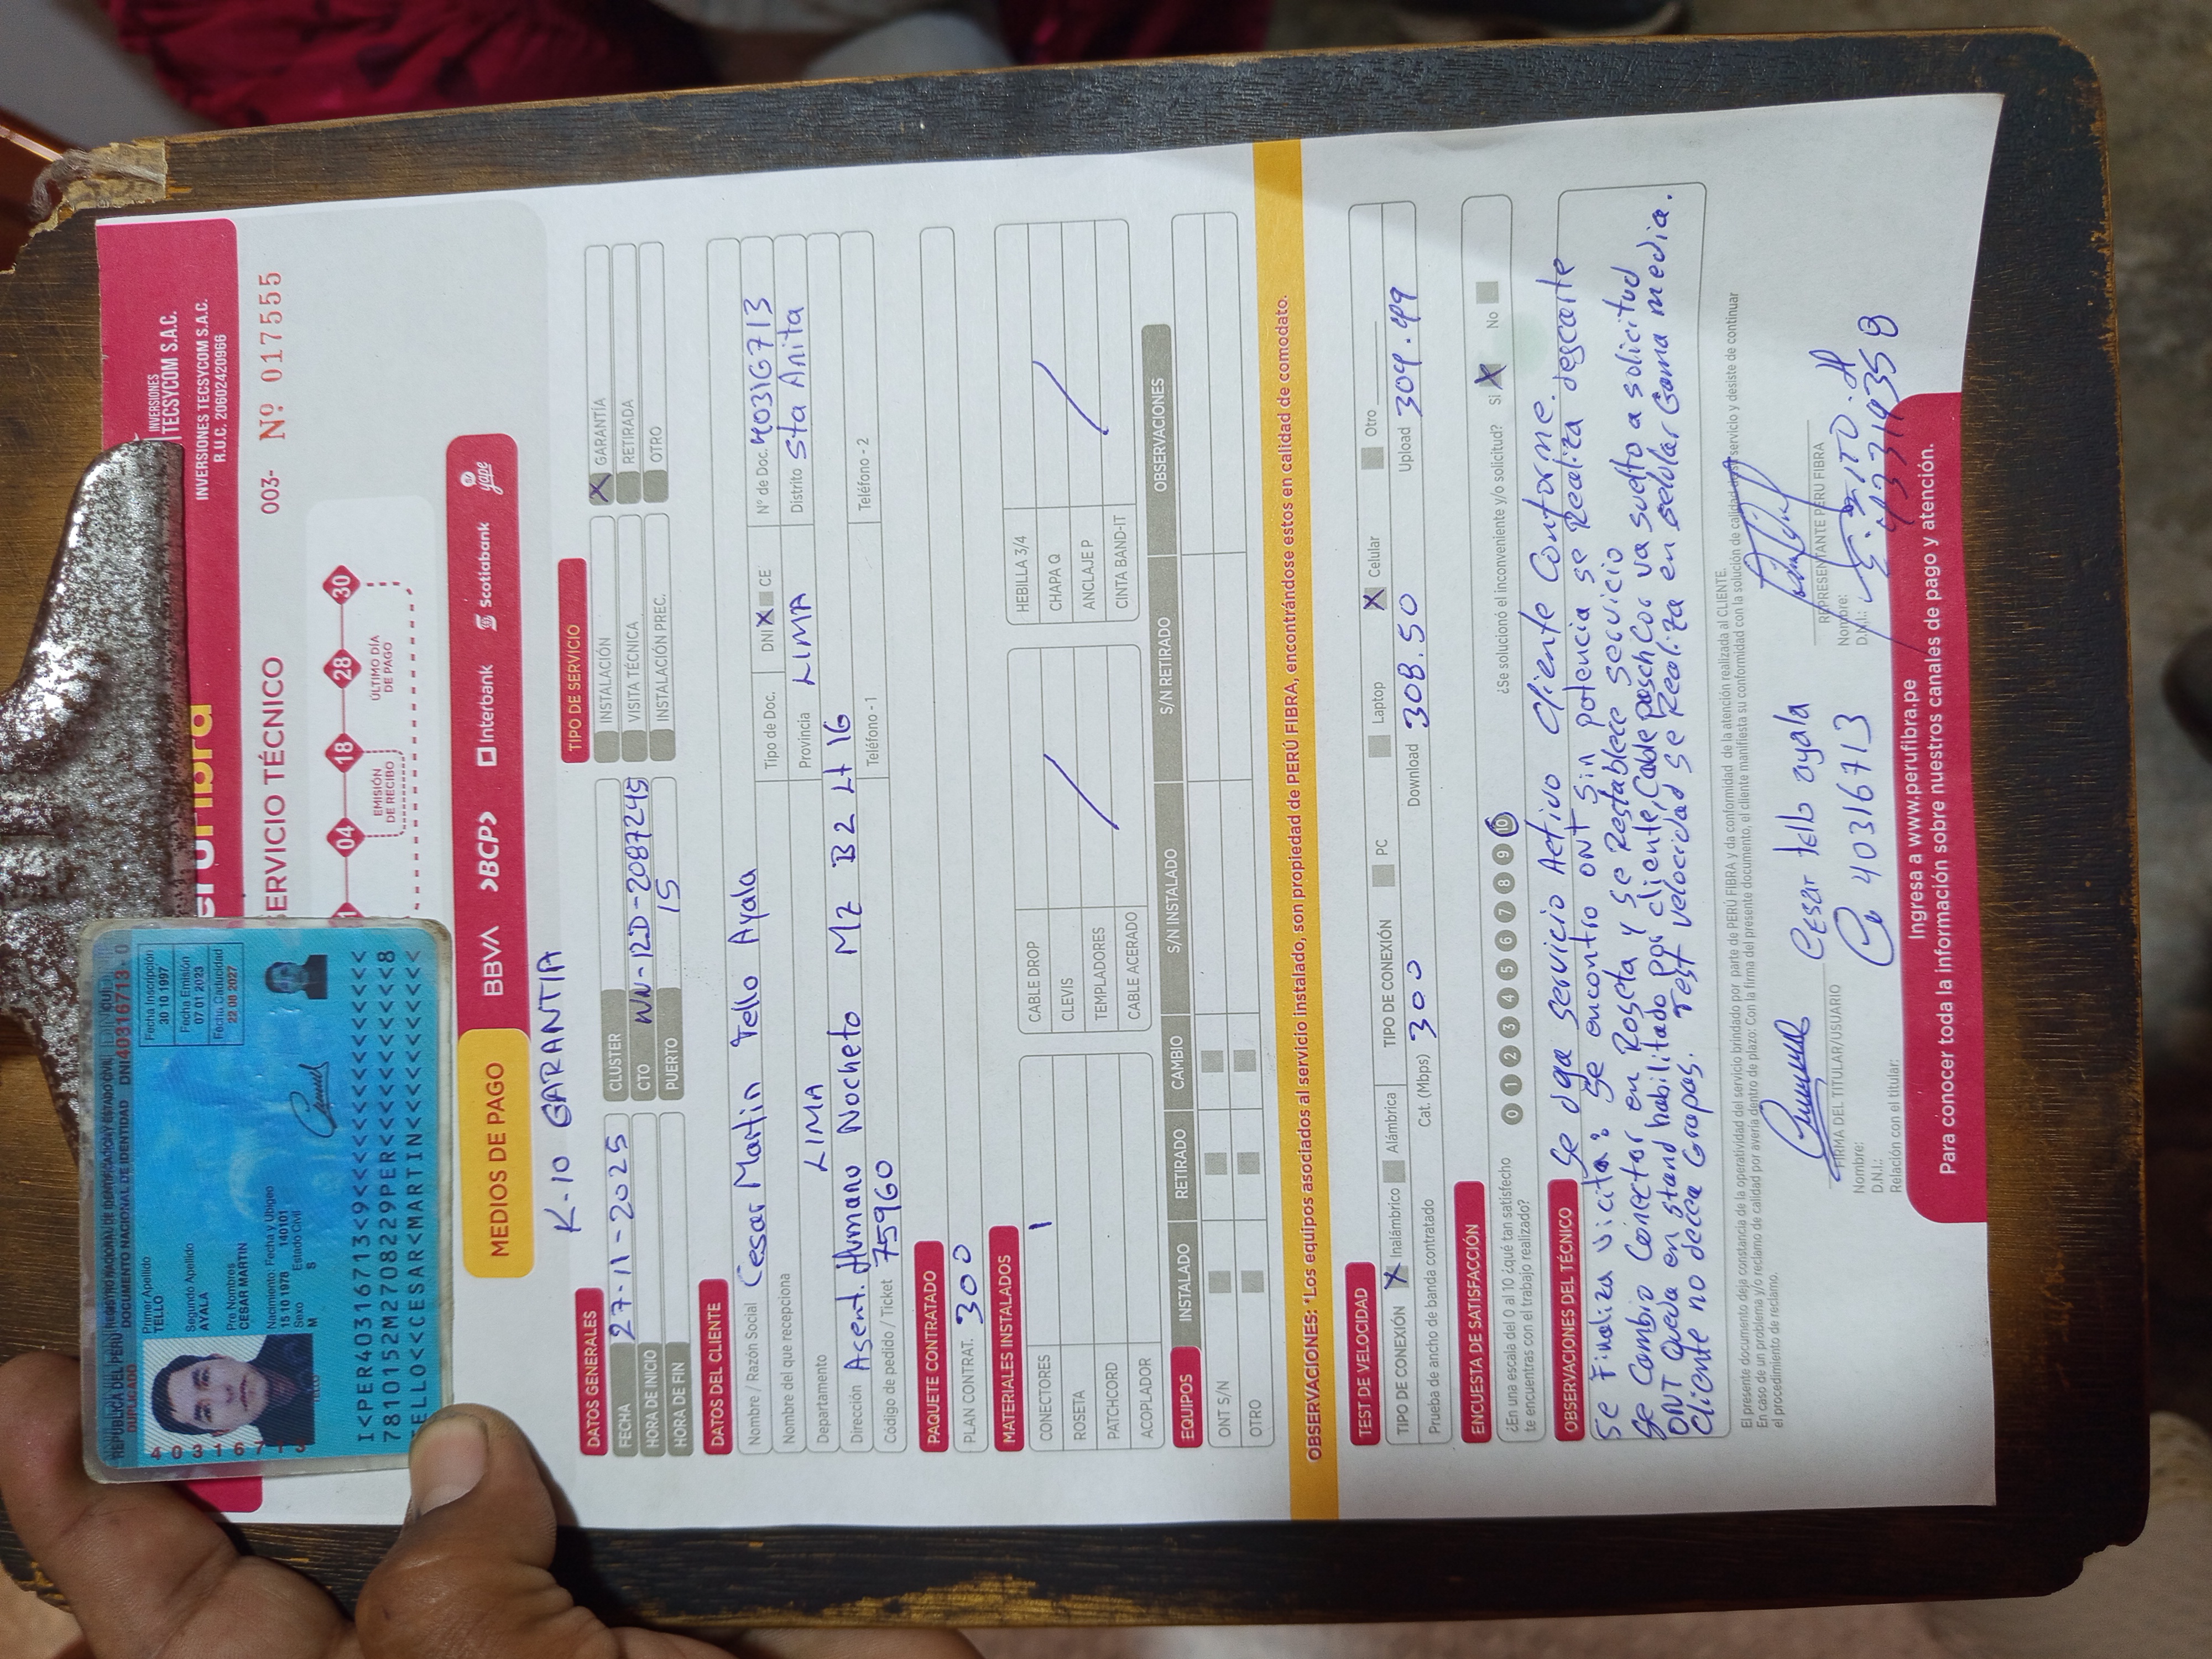 REPÚBLICA DEL PERÚ REGISTRO NACIONAL DE IDENTIFICACIÓN Y ESTADO CIVIL
DUPLICADO DOCUMENTO NACIONAL DE IDENTIDAD DNI 40316713 - 0
Primer Apellido
TELLO
Segundo Apellido
AYALA
Pre Nombres
CESAR MARTIN
Nacimiento: Fecha y Ubigeo
15 10 1978 140101
Sexo Estado Civil
M S
Fecha Inscripción
30 10 1997
Fecha Emisión
07 01 2023
Fecha Caducidad
22 08 2027
40316713
I<PER40316713<9<<<<<<<<<<<<<<<
7810152M2708229PER<<<<<<<<<<<8
TELLO<<CESAR<MARTIN<<<<<<<<<<<
INVERSIONES
TECSYCOM S.A.C.
INVERSIONES TECSYCOM S.A.C.
R.U.C. 20602420966
SERVICIO TÉCNICO 003- Nº 017555
04 18 28 30
EMISIÓN DE RECIBO
ÚLTIMO DÍA DE PAGO
MEDIOS DE PAGO BBVA >BCP> Interbank Scotiabank yape
K-10 GARANTIA
DATOS GENERALES
FECHA 27-11-2025
HORA DE INICIO
HORA DE FIN
CLUSTER
CTO WN-12D-2087245
PUERTO 15
TIPO DE SERVICIO
INSTALACIÓN X GARANTÍA
VISITA TÉCNICA RETIRADA
INSTALACIÓN PREC. OTRO
DATOS DEL CLIENTE
Nombre / Razón Social Cesar Martin Tello Ayala
Nombre del que recepciona Tipo de Doc. DNI X CE Nº de Doc. 40316713
Departamento LIMA Provincia LIMA Distrito Sta Anita
Dirección Asent. Humano Nocheto Mz B2 Lt 16
Código de pedido / Ticket 75960 Teléfono - 1 Teléfono - 2
PAQUETE CONTRATADO
PLAN CONTRAT. 300
MATERIALES INSTALADOS
CONECTORES 1 CABLE DROP HEBILLA 3/4
ROSETA CLEVIS CHAPA Q
PATCHCORD TEMPLADORES ANCLAJE P
ACOPLADOR CABLE ACERADO CINTA BAND-IT
EQUIPOS INSTALADO RETIRADO CAMBIO S/N INSTALADO S/N RETIRADO OBSERVACIONES
ONT S/N
OTRO
OBSERVACIONES: *Los equipos asociados al servicio instalado, son propiedad de PERÚ FIBRA, encontrándose estos en calidad de comodato.
TEST DE VELOCIDAD
TIPO DE CONEXIÓN X Inalámbrico Alámbrica TIPO DE CONEXIÓN PC Laptop X Celular Otro
Prueba de ancho de banda contratado Cat. (Mbps) 300 Download 308.50 Upload 309.49
ENCUESTA DE SATISFACCIÓN
¿En una escala del 0 al 10 ¿qué tan satisfecho
te encuentras con el trabajo realizado?
0 1 2 3 4 5 6 7 8 9 10 ¿Se solucionó el inconveniente y/o solicitud? Si X No
OBSERVACIONES DEL TÉCNICO Se dga servicio Activo Cliente Conforme.
Se Finaliza vicita: Se encontro ONT sin potencia se Realiza descarte
Se Cambio Conector en Roseta y se Restablece servicio
ONT Queda en stand habilitado por cliente, Cable Poschcor va suelto a solicitud
Cliente no decea Grapas. Test velocidad se Realiza en selular Gama media.
El presente documento deja constancia de la operatividad del servicio brindado por parte de PERÚ FIBRA y da conformidad de la atención realizada al CLIENTE.
En caso de un problema y/o reclamo de calidad por avería dentro de plazo: Con la firma del presente documento, el cliente manifiesta su conformidad con la solución de calidad servicio y desiste de continuar
el procedimiento de reclamo.
FIRMA DEL TITULAR/USUARIO
Nombre: Cesar tello ayala
D.N.I.: 40316713
Relación con el titular:
REPRESENTANTE PERU FIBRA
Nombre:
D.N.I.:
Ingresa a www.perufibra.pe
Para conocer toda la información sobre nuestros canales de pago y atención.